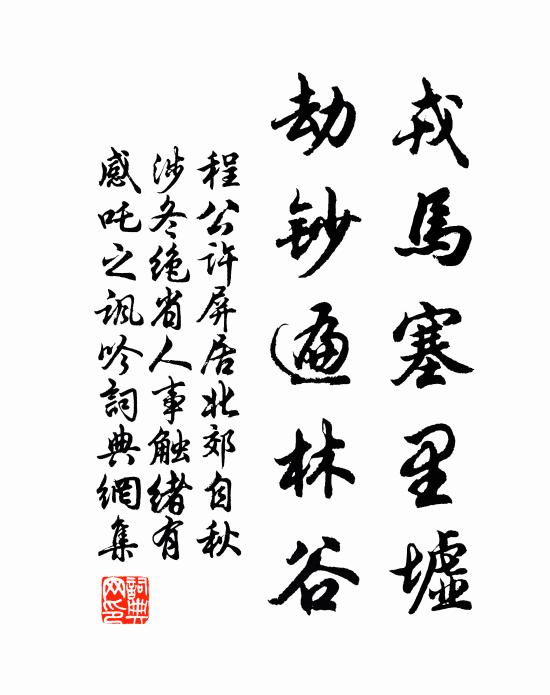 戎馬塞里墟
劫鈔遍林谷
程公許屏居北郊自秋
涉冬絶省人事触緒有
感吒之諷吟詞典網集
詞典
网印